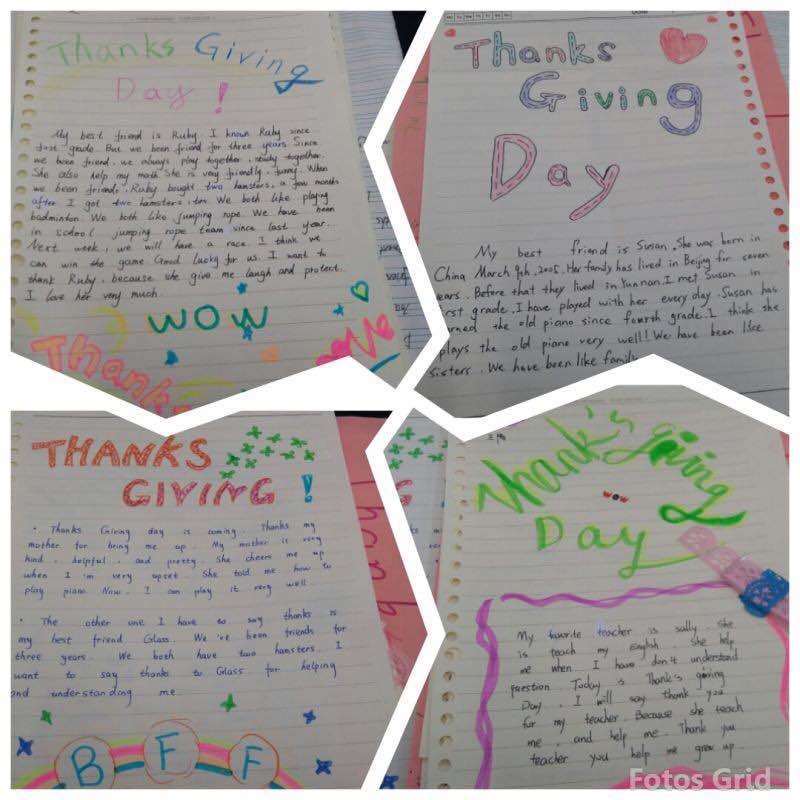 Thanks Giving
Day !
My best friend is Ruby. I known Ruby since
first grade. But we been friend for three years. Since
we been friend, we always play together, study together.
She also help my math. She is very friendly, funny. When
we been friends, Ruby bought two hamsters, a few months
after I got two hamsters, too. We both like playing
badminton. We both like jumping rope. We have been
in school jumping rope team since last year.
Next week, we will have a race. I think we
can win the game. Good lucky for us. I want to
thank Ruby, because she give me laugh and protect.
I love her very much.
WOW
Thank
Thanks
Giving
Day
My best friend is Susan. She was born in
China March 9th, 2005. Her family has lived in Beijing for seven
years. Before that they lived in Yunnan. I met Susan in
first grade. I have played with her every day. Susan has
learned the old piano since fourth grade. I think she
plays the old piano very well! We have been like
sisters. We have been like family.
THANKS
GIVING !
• Thanks Giving day is coming. Thanks my
mother for being me up. My mother is very
kind, helpful, and pretty. She cheers me up
when I'm very upset. She told me how to
play piano. Now, I can play it very well.
• The other one I have to say thanks is
my best friend Glass. We've been friends for
three years. We both have two hamsters. I
want to say thanks to Glass for helping
and understanding me.
BFF
Thank's giving
wow
Day
My favorite teacher is sally. She
is teach my English. She help
me when I have don't understand
question. Today is Thank's giving
Day. I will say thank you
for my teacher. Because she teach
me, and help me. Thank you
teacher you help me grew up.
Fotos Grid